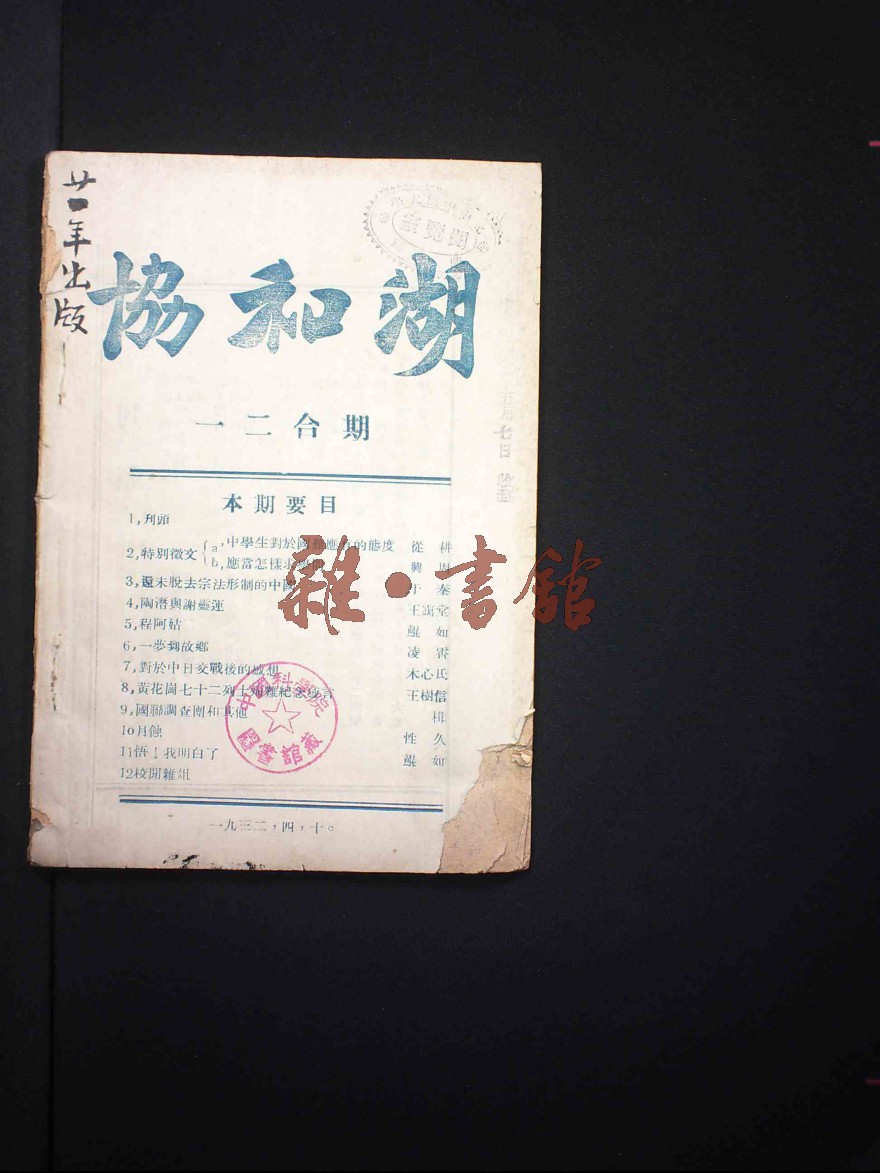 廿一年出版
閱覽室
協和湖
一二合期
五月七日 收到
本期要目
1,刋頭
2,特別徵文
a,中學生對於國難應有的態度 從耕
b,應當怎樣求學問 興周
3,還未脫去宗法形制的中國 于秦
4,陶潛與謝靈運 王謁堂
5,程阿姑 鯤如
6,一夢到故鄉 凌霄
7,對於中日交戰後的感想 木心氏
8,黃花崗七十二列士殉難紀念感言 王樹信
9,國聯調查團和其他 楫
10月蝕 性久
11悟!我明白了 鯤如
12校聞雜俎
中國科學院
圖書館藏
雜·書館
一九三二,四,十。